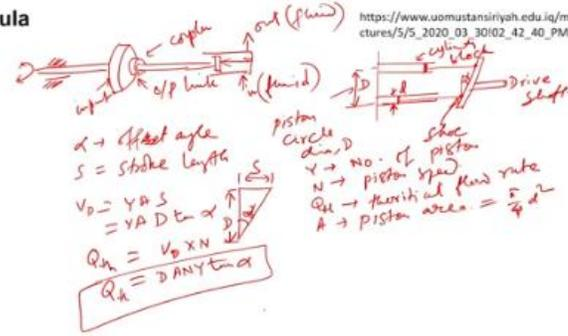 ula
https://www.uomustansiriyah.edu.iq/m
ctures/5/5_2020_03_30!02_42_40_PM
out (fluid)
input
o/p link
in (fluid)
cylinder block
D
d
Drive shaft
shoe
piston circle dia, D
α → offset angle
S = stroke length
V_D = YAS
= YAD tan α
Q_th = V_D × N
Q_th = DANY tan α
S
D
α
Y → No. of piston
N → piston speed
Q_th → theoritical flow rate
A → piston area = π/4 d²